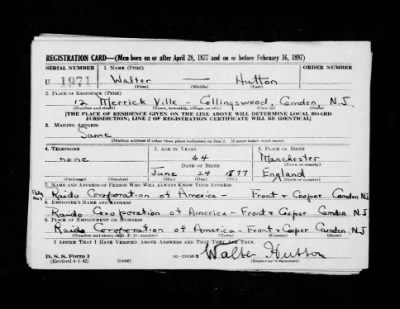 REGISTRATION CARD—(Men born on or after April 28, 1877 and on or before February 16, 1897)
SERIAL NUMBER 1. NAME (Print) ORDER NUMBER
U 1971 Walter — Hutton
(First) (Middle) (Last)
2. PLACE OF RESIDENCE (Print)
12 Merrick Ville - Collingswood, Camden, N.J.
(Number and street) (Town, township, village, or city) (County) (State)
[THE PLACE OF RESIDENCE GIVEN ON THE LINE ABOVE WILL DETERMINE LOCAL BOARD
JURISDICTION; LINE 2 OF REGISTRATION CERTIFICATE WILL BE IDENTICAL]
3. MAILING ADDRESS
Same
[Mailing address if other than place indicated on line 2. If same insert word same]
4. TELEPHONE 5. AGE IN YEARS 6. PLACE OF BIRTH
none 64 Manchester
DATE OF BIRTH (Town or county)
June 24 1877 England
(Exchange) (Number) (Mo.) (Day) (Yr.) (State or country)
7. NAME AND ADDRESS OF PERSON WHO WILL ALWAYS KNOW YOUR ADDRESS
Raido Corporation of America - Front & Cooper Camden NJ
8. EMPLOYER'S NAME AND ADDRESS
Raido Corporation of America - Front & Cooper Camden NJ
9. PLACE OF EMPLOYMENT OR BUSINESS
Raido Cororation of America - Front & Cooper Camden, NJ
(Number and street or R. F. D. number) (Town) (County) (State)
I AFFIRM THAT I HAVE VERIFIED ABOVE ANSWERS AND THAT THEY ARE TRUE.
D. S. S. Form 1
(Revised 4-1-42) (over)
Walter Hutton
(Registrant's signature)